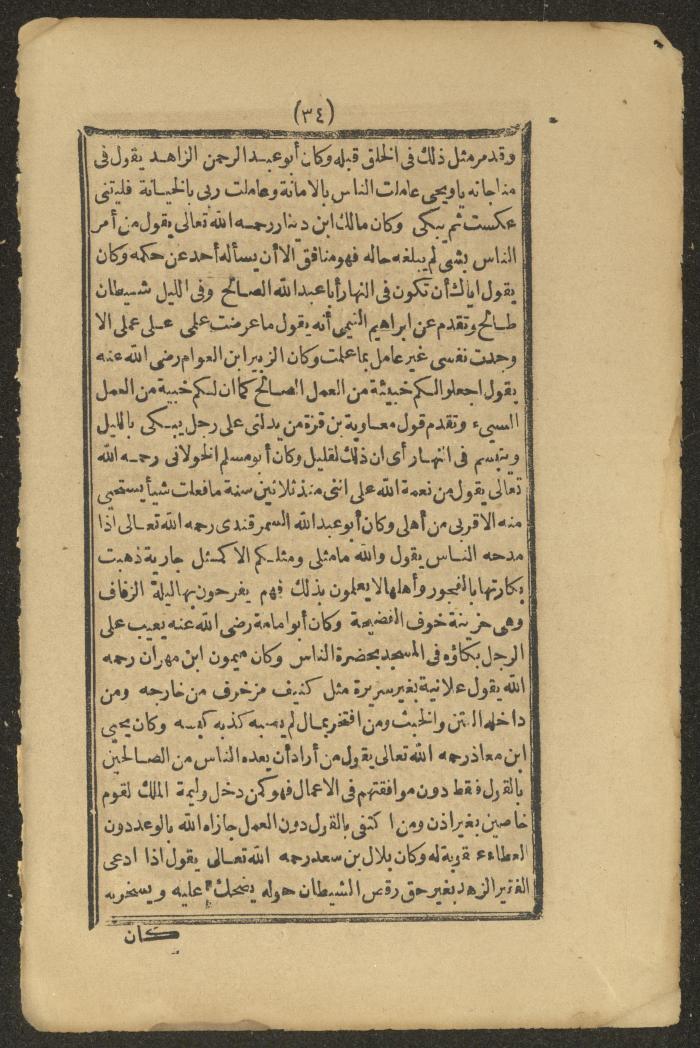 (٣٤)
وقد مر مثل ذلك فى الخلق قبله وكان أبو عبد الرحمن الزاهد يقول فى
مناجاته ياويحى عاملت الناس بالامانة وعاملت ربى بالخيانة فليتنى
عكست ثم يبكى وكان مالك ابن دينار رحمه الله تعالى يقول من أمر
الناس بشى لم يبلغه حاله فهو منافق الا أن يسأله أحد عن حكمه وكان
يقول اياك أن تكون فى النهار أبا عبد الله الصالح وفى الليل شيطان
طالح وتقدم عن ابراهيم التيمى أنه يقول ما عرضت علمى على عملى الا
وجدت نفسى غير عامل بما علمت وكان الزبير ابن العوام رضى الله عنه
يقول اجعلوا لكم خبيئة من العمل الصالح كما ان لكم خبية من العمل
السيىء وتقدم قول معاوية بن قرة من يدلنى على رجل يبكى بالليل
ويتبسم فى النهار أى ان ذلك لقليل وكان أبو مسلم الخولانى رحمه الله
تعالى يقول من نعمة الله على اننى منذ ثلاثين سنة ما فعلت شيأ يستحيى
منه الا قربى من أهلى وكان أبو عبد الله السمرقندى رحمه الله تعالى اذا
مدحه الناس يقول والله ما مثلى ومثلكم الا كمثل جارية ذهبت
بكارتها بالفجور وأهلها لا يعلمون بذلك فهم يفرحون بها ليلة الزفاف
وهى حزينة خوف الفضيحة وكان أبو امامة رضى الله عنه يعيب على
الرجل بكاؤه فى المسجد بحضرة الناس وكان ميمون ابن مهران رحمه
الله يقول علانية بغير سريرة مثل كنيف مزخرف من خارجه ومن
داخله النتن والخبث ومن افتخر بمال لم يصبه كذبه كيسه وكان يحيى
ابن معاذ رحمه الله تعالى يقول من أراد أن يعده الناس من الصالحين
بالقول فقط دون موافقتهم فى الاعمال فهو كمن دخل وليمة الملك لقوم
خاصين بغير اذن ومن اكتفى بالقول دون العمل جازاه الله بالوعد دون
العطاء عقوبة له وكان بلال بن سعد رحمه الله تعالى يقول اذا ادعى
الفقير الزهد بغير حق رقص الشيطان حوله يضحك عليه ويسخر به
كان